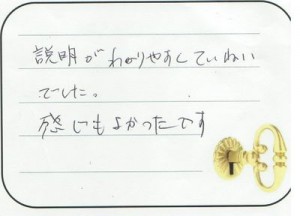 説明がわかりやすくていねい
でした。
感じもよかったです